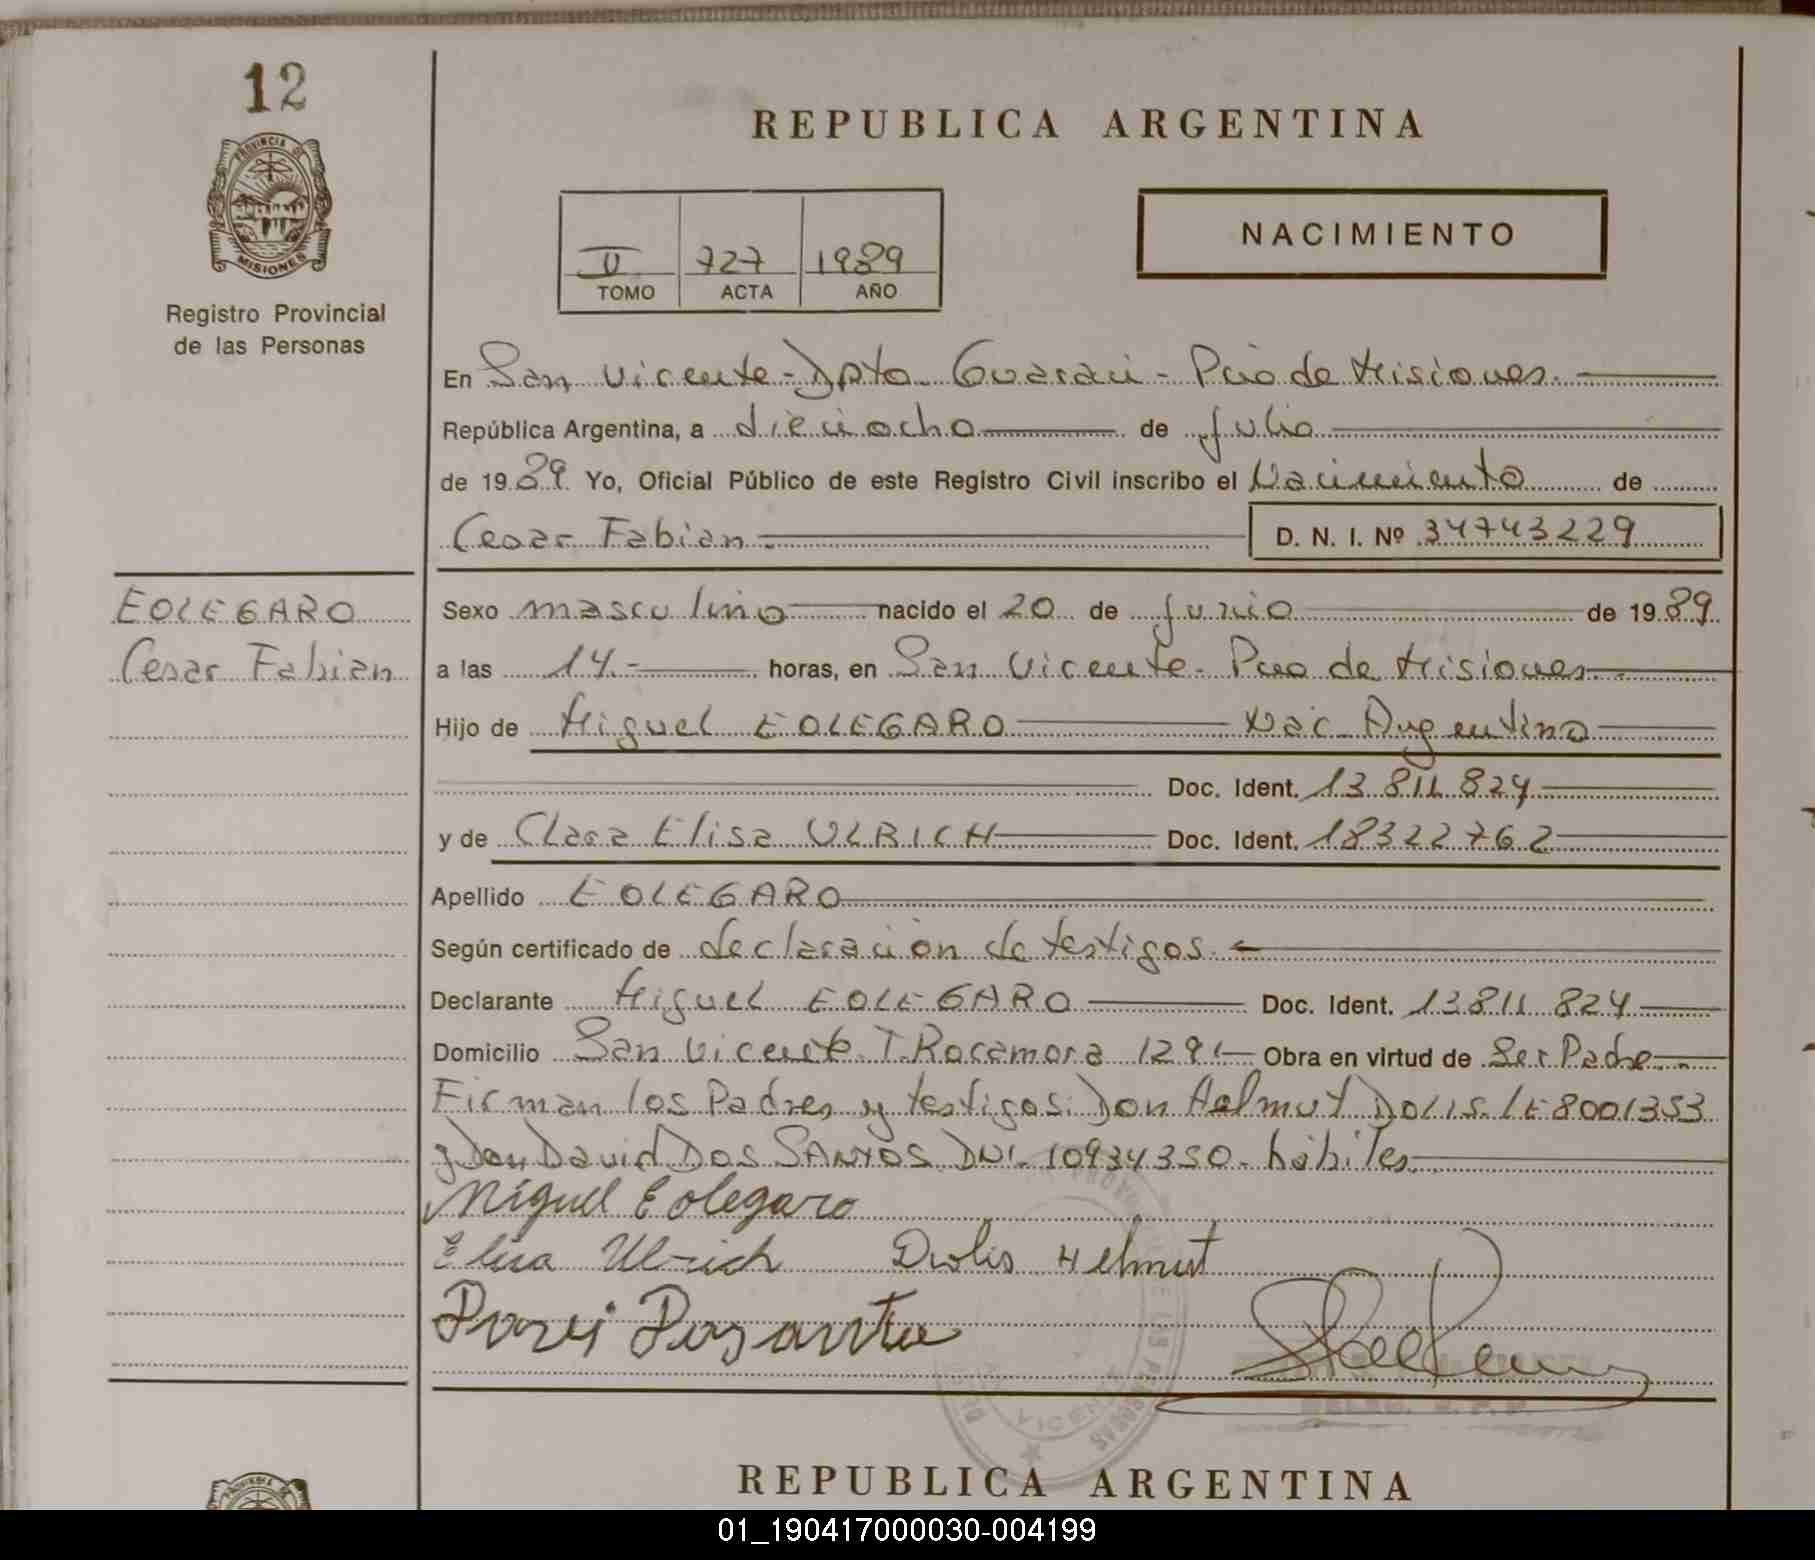 12
PROVINCIA DE
MISIONES
Registro Provincial
de las Personas
REPUBLICA ARGENTINA
NACIMIENTO
II 727 1989
TOMO ACTA AÑO
En San Vicente - Dpto Guarani - Pcia de Misiones.
República Argentina, a dieciocho de Julio
de 1989. Yo, Oficial Público de este Registro Civil inscribo el Nacimiento de
Cesar Fabian D. N. I. Nº 34743229
EOLEGARO
Cesar Fabian
Sexo masculino nacido el 20 de junio de 1989
a las 14.- horas, en San Vicente - Pcia de Misiones
Hijo de Miguel EOLEGARO Nac. Argentino
Doc. Ident. 13.811.824
y de Clara Elisa ULRICH Doc. Ident. 18322762
Apellido EOLEGARO
Según certificado de declaracion de testigos.
Declarante Miguel EOLEGARO Doc. Ident. 13811824
Domicilio San Vicente T. Rocamora 1291 Obra en virtud de Ser Padre
Firman los Padres y testigos. Don Helmut DOLIS. LE 8001353
y Don David DOS SANTOS DNI. 10934350 - hábiles
Miguel Eolegaro
Elisa Ulrich Dolis Helmut
VICENTE
REPUBLICA ARGENTINA
01_190417000030-004199